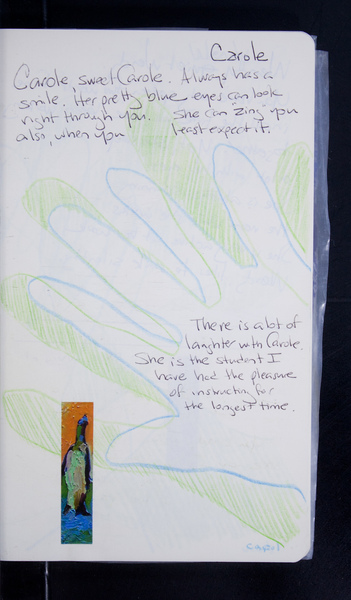 Carole
Carole, sweet Carole. Always has a
smile. Her pretty blue eyes can look
right through you. She can "zing" you
also, when you least expect it.
There is a lot of
laughter with Carole.
She is the student I
have had the pleasure
of instructing for
the longest time.
Carol